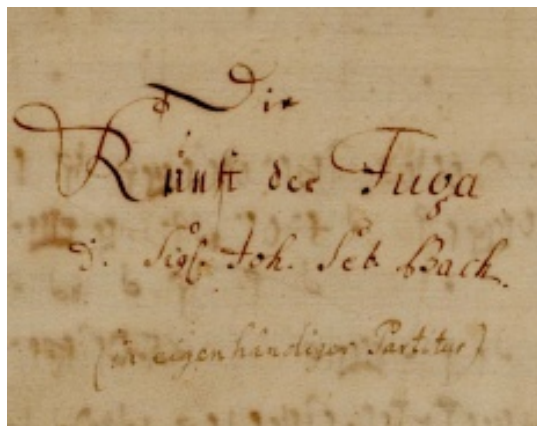 Die
Kunst der Fuga
d. Sigl. Joh. Seb. Bach.
(in eigenhändiger Partitur)